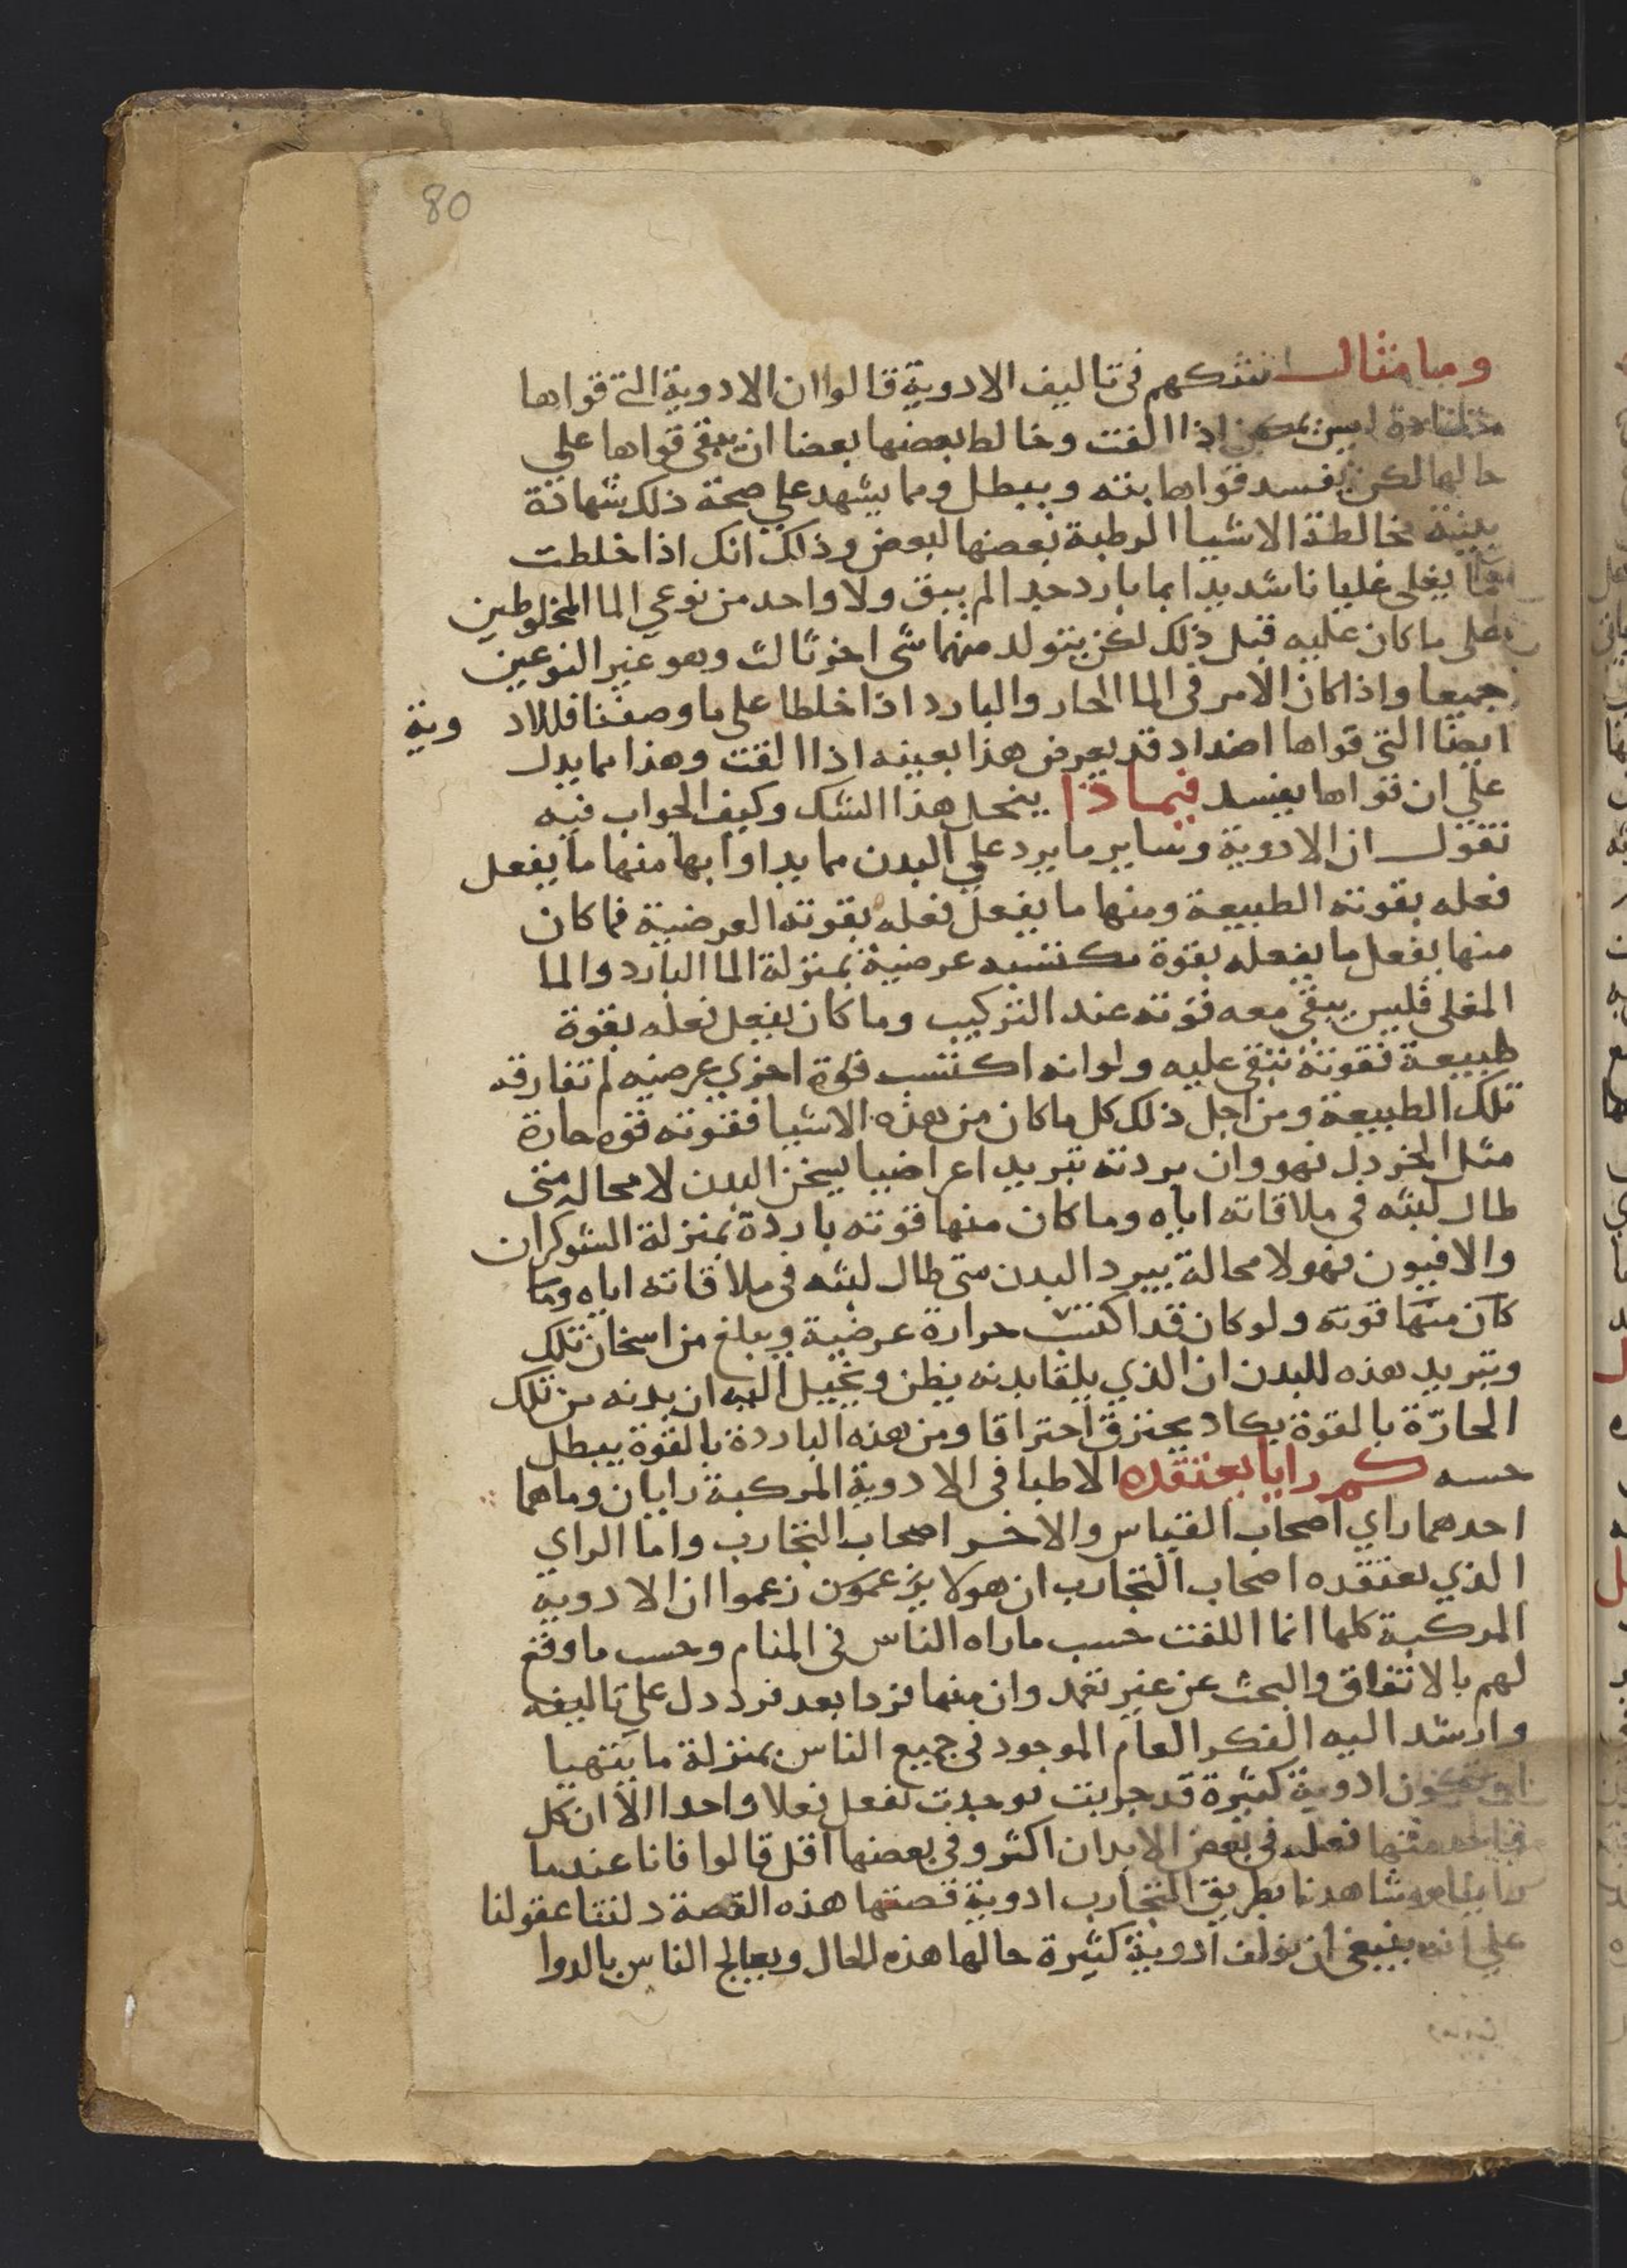 80
وما مثال تشككهم في تاليف الادوية قالوا ان الادوية التي قواها
متضادة ليس يمكن اذا الفت وخالط بعضها بعضا ان تبقى قواها علي
حالها لكن يفسد قواها بته ويبطل ومما يشهد علي صحة ذلك شهادة
بينة مخالطة الاشيا الرطبة بعضها لبعض وذلك انك اذا خلطت
ما يغلي غليانا شديدا بما بارد جدا لم يبق ولا واحد من نوعي الما المخلوطين
على ما كان عليه قبل ذلك لكن يتولد منهما شى اخر ثالث وهو غير النوعين
جميعا واذا كان الامر في الما الحار والبارد اذا خلطا على ما وصفنا فللاد وية
ايضا التي قواها اضداد قد يعرض هذا بعينه اذا الفت وهذا مما يدل
علي ان قواها يفسد فبماذا ينحل هذا الشك وكيف الجواب فيه
نقول ان الادوية وساير ما يرد علي البدن مما يداوا بها منها ما يفعل
فعله بقوته الطبيعة ومنها ما يفعل فعله بقوته العرضية فما كان
منها يفعل ما يفعله بقوة مكتسبه عرضية بمنزلة الما البارد والما
المغلي فليس يبقى معه قوته عند التركيب وما كان يفعل فعله بقوة
طبيعة فقوته تبقى عليه ولو انه اكتسب قوة اخري عرضيه لم تفارقه
تلك الطبيعة ومن اجل ذلك كل ما كان من هذه الاشيا فقوته قوه حارة
مثل الخردل فهو وان بردته تبريدا عراضيا يسخن البدن لا محاله متى
طال لبثه في ملاقاته اياه وما كان منها قوته باردة بمنزلة الشوكران
والافيون فهو لا محالة يبرد البدن متى طال لبثه في ملاقاته اياه وما
كان منها قوته ولو كان قد اكتسب حرارة عرضية ويبلغ من اسخان تلك
وتبريد هذه للبدن ان الذي يلقا بدنه يظن ويخيل اليه ان بدنه من تلك
الحارّة بالقوة يكاد يحترق احتراقا ومن هذه الباردة بالقوة يبطل
حسه كم رايا يعتقده الاطبا في الادوية المركبة رايان وما هما
احدهما راي اصحاب القياس والاخر اصحاب التجارب واما الراي
الذي يعتقده اصحاب التجارب ان هولا يزعمون زعموا ان الادويه
المركبة كلها انما اللفت حسب ماراه الناس في المنام وحسب ما وقع
لهم بالاتفاق والبحث عن غير تعمد وان منها فردا بعد فرد دل علي تاليفه
وارشد اليه الفكر العام الموجود في جميع الناس بمنزلة ما يتهيا
ان تكون ادوية كثيرة قد جربت فوجدت تفعل فعلا واحدا الا ان كل
منها فعله في بعض الابدان اكثر وفي بعضها اقل قالوا فانا عندما
راينا وشاهدنا بطريق التجارب ادوية قصتها هذه القصة دلتنا عقولنا
علي انه ينبغي ان نولف ادوية كثيرة حالها هذه الحال ويعالج الناس بالدوا